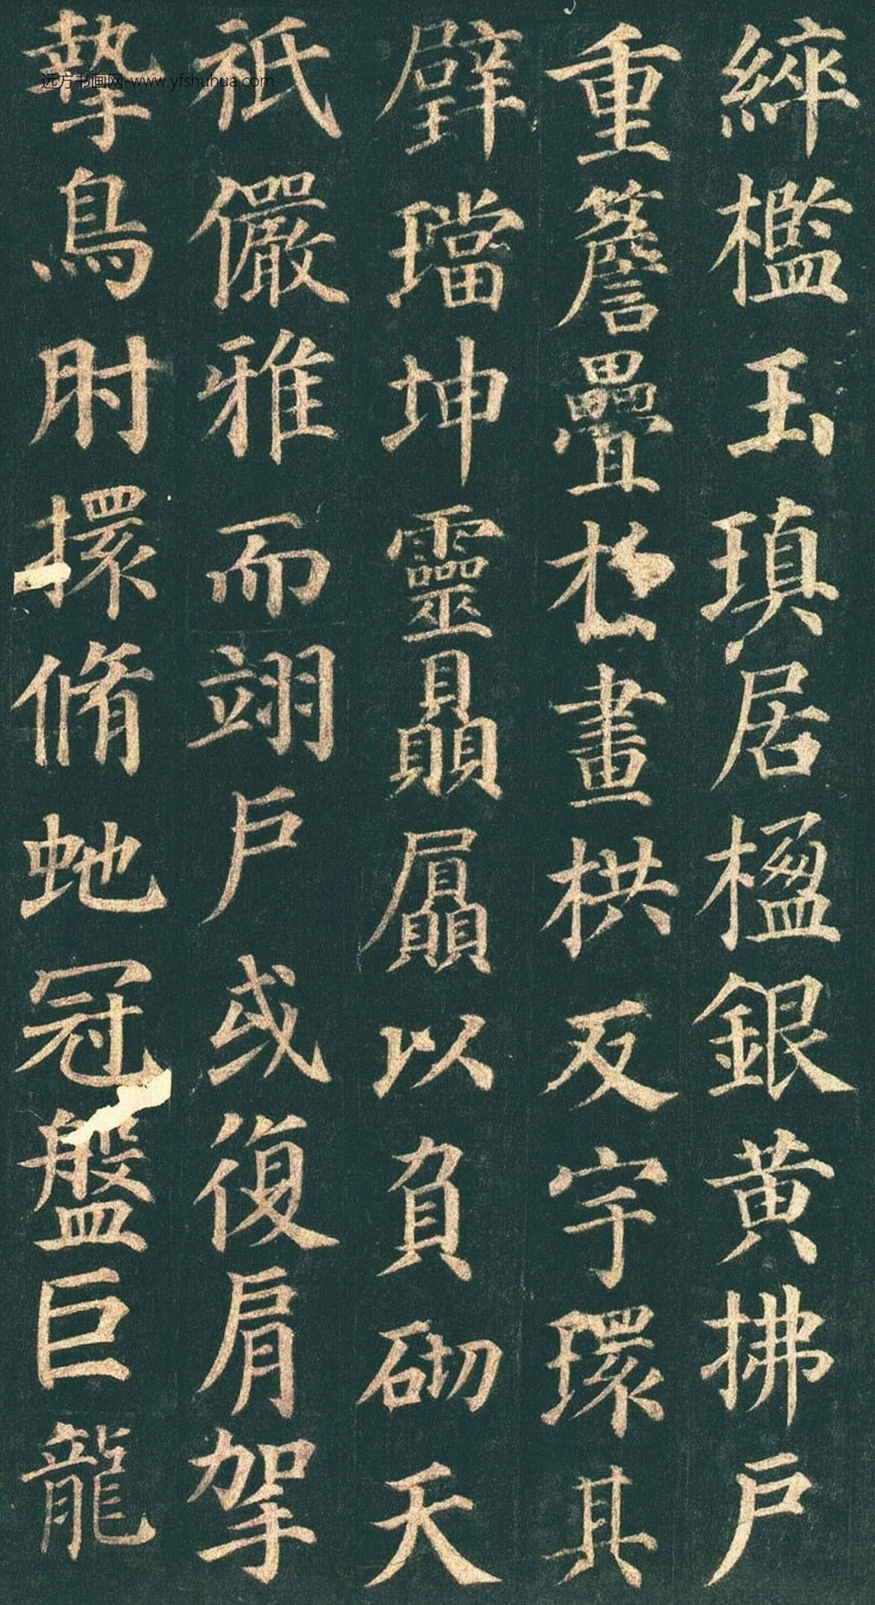 綷檻玉瑱居楹銀黃拂戶
重簷疊於畫栱反宇環其
壁璫坤靈贔屭以負砌天
祇儼雅而翊戶或復肩挐
摯鳥肘擐脩虵冠盤巨龍
远方书画网-www.yfshuhua.com